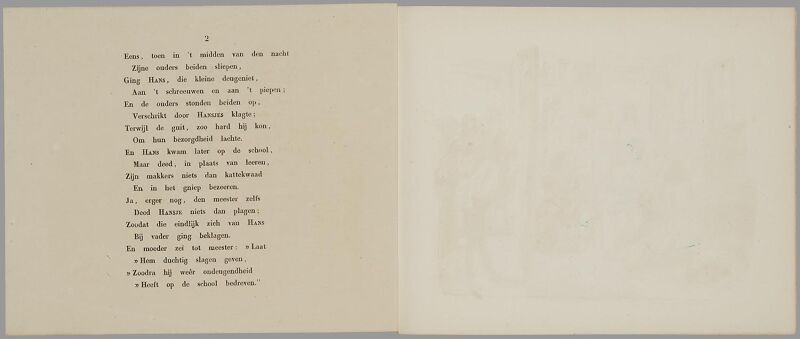 2
Eens, toen in 't midden van den nacht
Zijne ouders beiden sliepen,
Ging HANS, die kleine deugeniet,
Aan 't schreeuwen en aan 't piepen;
En de ouders stonden beiden op,
Verschrikt door HANSJES klagte;
Terwijl de guit, zoo hard hij kon,
Om hun bezorgdheid lachte.
En HANS kwam later op de school,
Maar deed, in plaats van leeren,
Zijn makkers niets dan kattekwaad
En in het gniep bezeeren.
Ja, erger nog, den meester zelfs
Deed HANSJE niets dan plagen;
Zoodat die eindlijk zich van HANS
Bij vader ging beklagen.
En moeder zei tot meester: » Laat
» Hem duchtig slagen geven,
» Zoodra hij weêr ondeugendheid
» Heeft op de school bedreven."